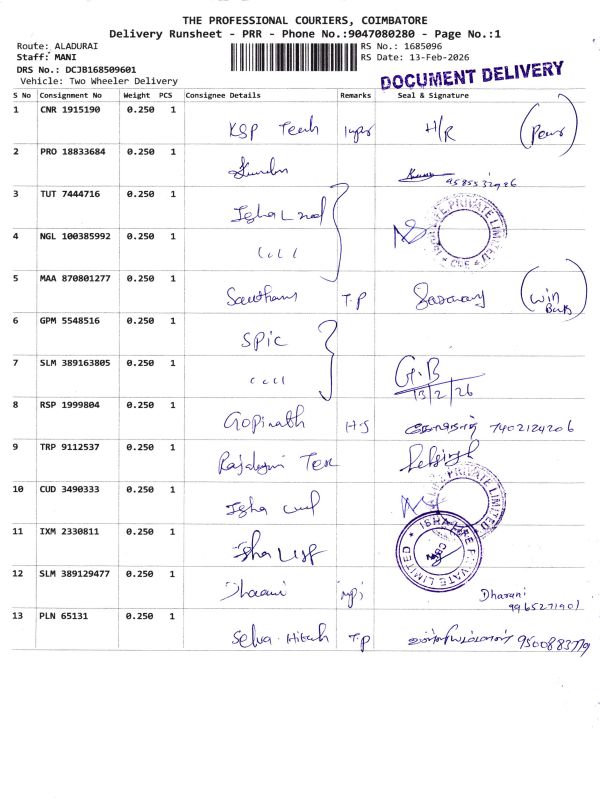 THE PROFESSIONAL COURIERS, COIMBATORE
Delivery Runsheet - PRR - Phone No.:9047080280 - Page No.:1
Route: ALADURAI RS No.: 1685096
Staff: MANI RS Date: 13-Feb-2026
DRS No.: DCJB168509601
Vehicle: Two Wheeler Delivery
DOCUMENT DELIVERY
S No Consignment No Weight PCS Consignee Details Remarks Seal & Signature
1 CNR 1915190 0.250 1 KSP Tech H/R
2 PRO 18833684 0.250 1
3 TUT 7444716 0.250 1 Isha
PRIVATE LIMITED
4 NGL 100385992 0.250 1 "
5 MAA 870801277 0.250 1 T.P (Win
6 GPM 5548516 0.250 1 SPIC
7 SLM 389163805 0.250 1 " G.B
13/2/26
8 RSP 1999804 0.250 1 Gopinath H.S 7402124206
9 TRP 9112537 0.250 1
PRIVATE LIMITED
10 CUD 3490333 0.250 1 Isha
11 IXM 2330811 0.250 1 Isha
ISHA LIFE PRIVATE LIMITED
12 SLM 389129477 0.250 1 Dharani Dharani
9965271901
13 PLN 65131 0.250 1 Selva. T.P 9500883779